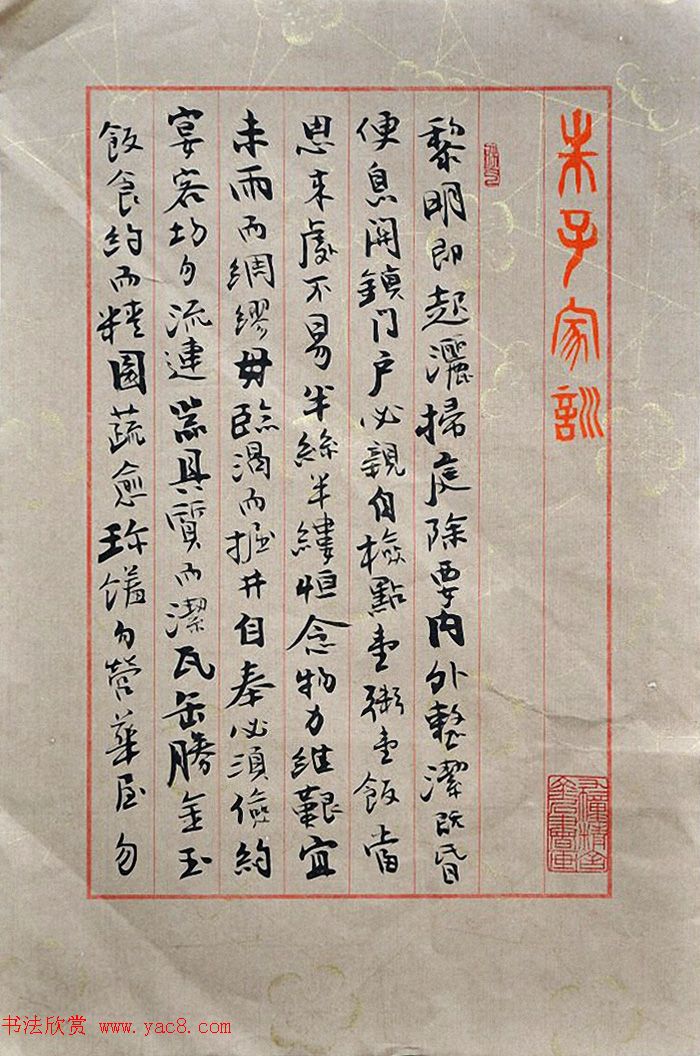 朱子家訓
黎明即起灑掃庭除要内外整潔既昏
便息関鎖门户必親自檢點壹粥壹飯當
思来處不易半絲半縷恒念物力維艱宜
未雨而綢繆毋臨渴而掘井自奉必須儉約
宴客切勿流連器具質而潔瓦缶勝金玉
飯食約而精園蔬愈珍饈勿營華屋勿
书法欣赏 www.yac8.com